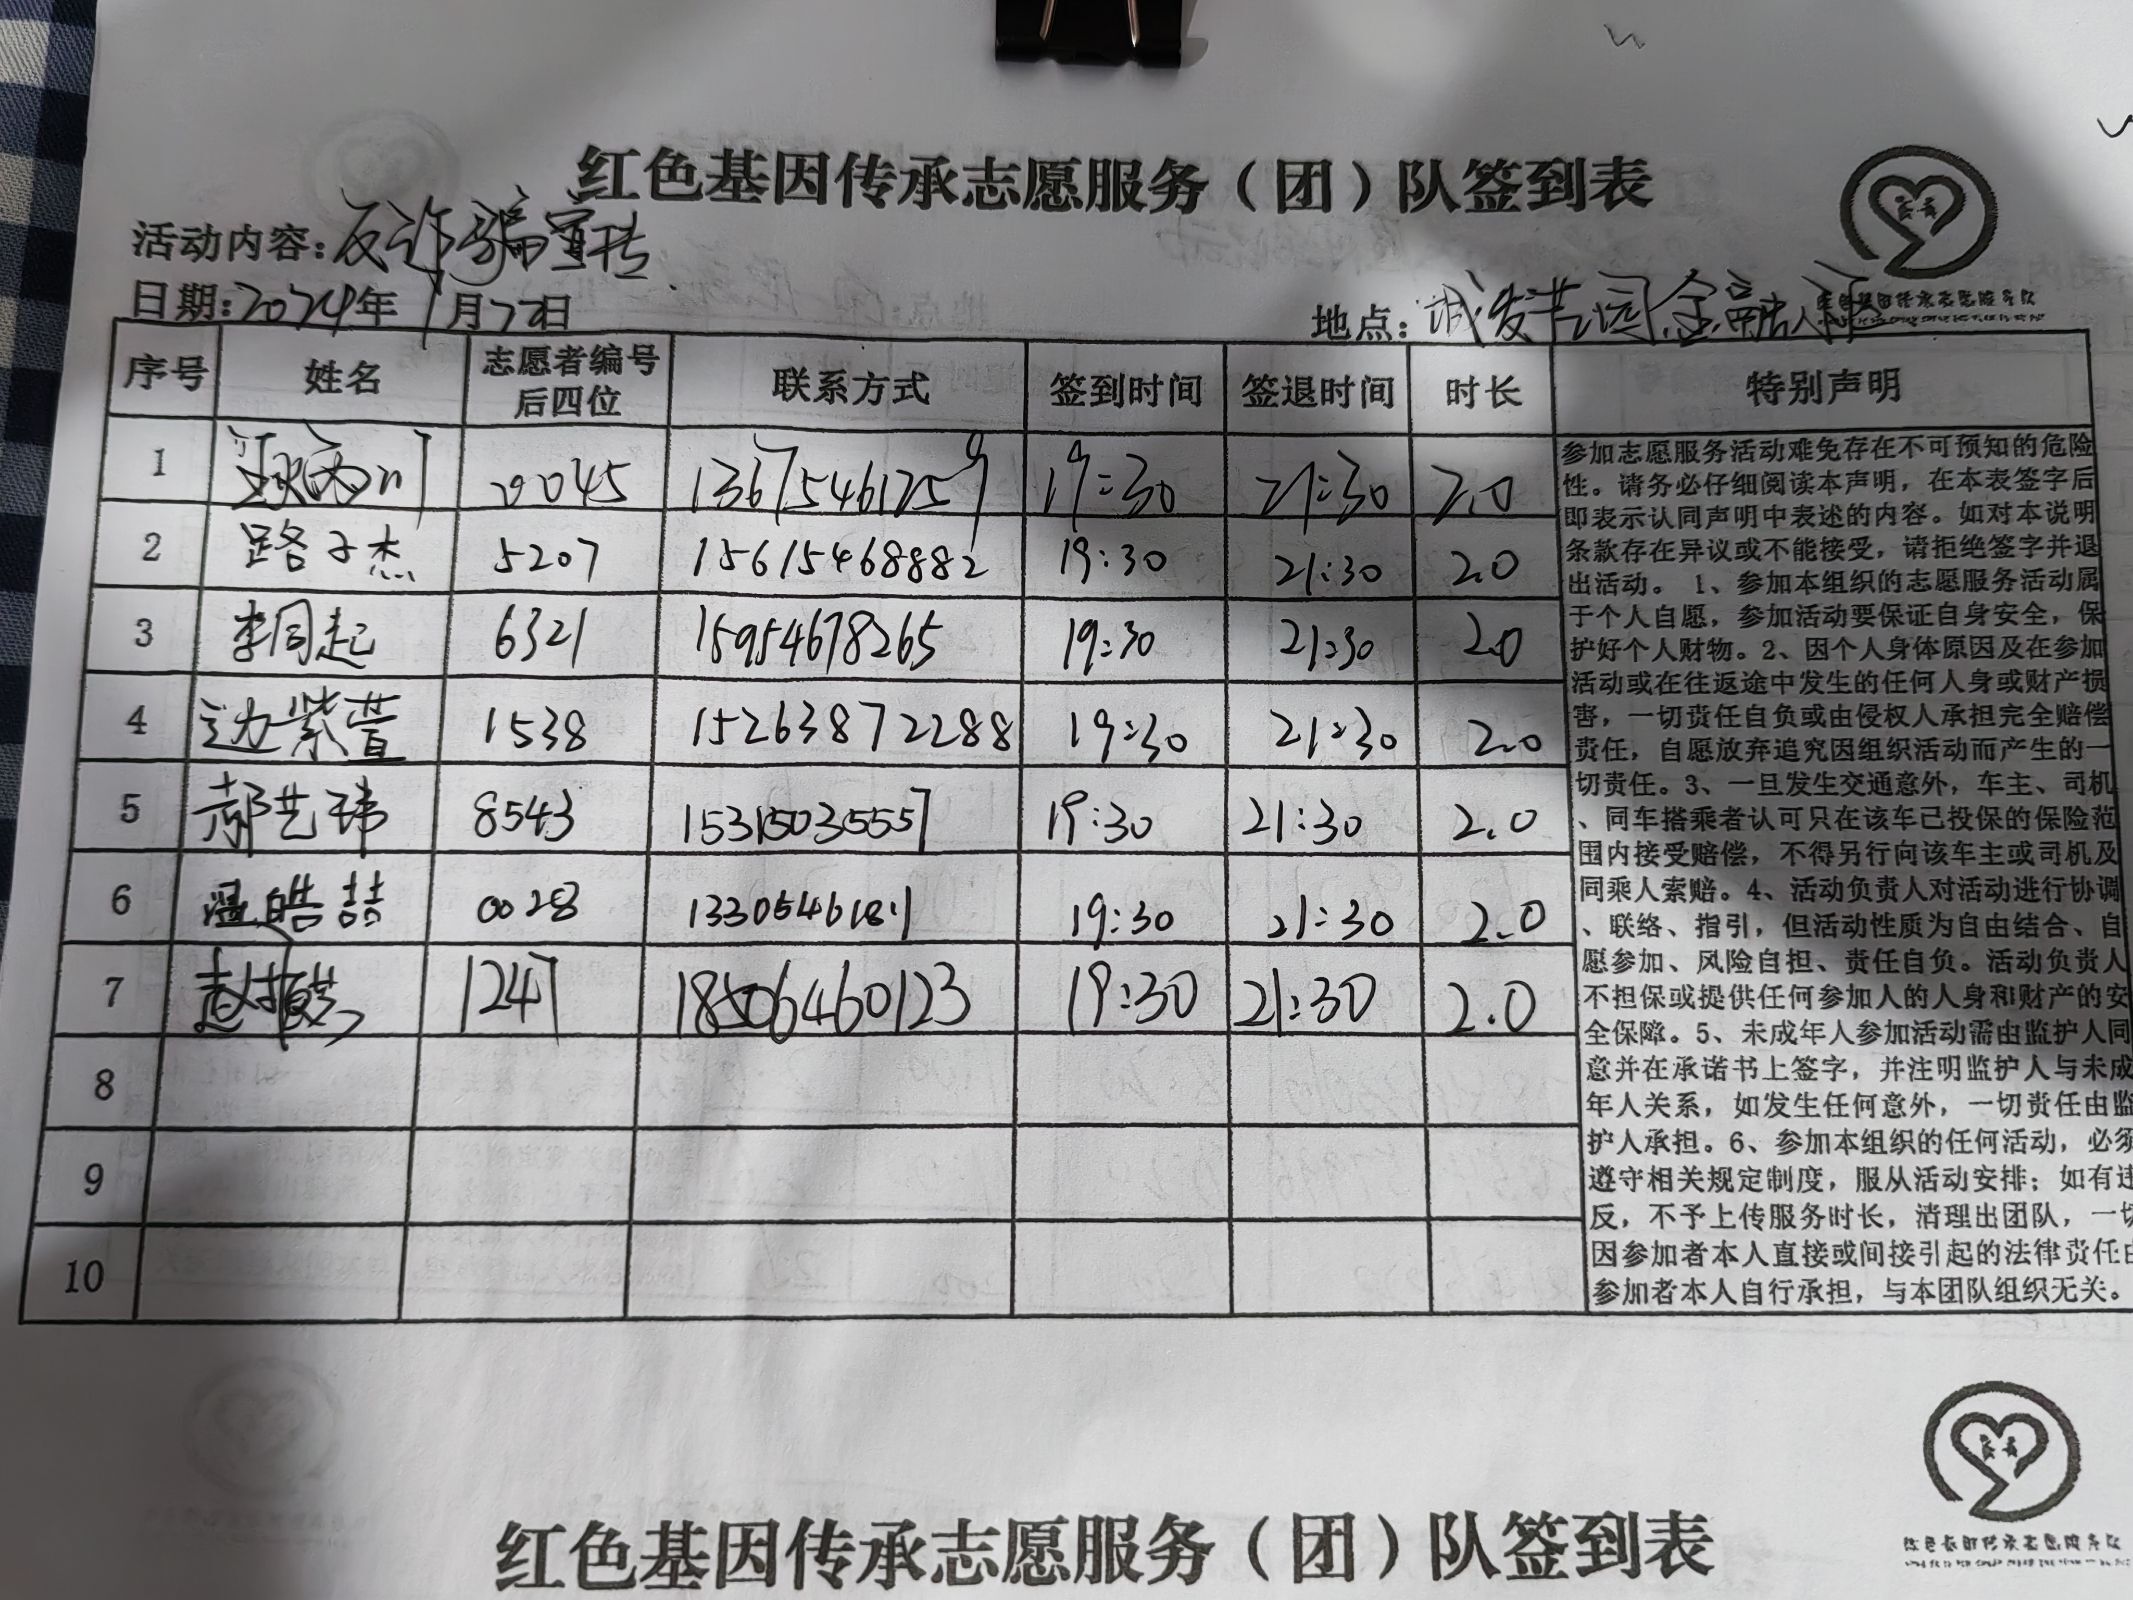 红色基因传承志愿服务（团）队签到表
活动内容：反诈骗宣传
日期：2024年1月22日
地点：
序号 姓名 志愿者编号后四位 联系方式 签到时间 签退时间 时长 特别声明
1 0045 13675461259 19:30 21:30 2.0
2 路子杰 5207 15615468882 19:30 21:30 2.0
3 李同起 6321 15954678265 19:30 21:30 2.0
4 边紫萱 1538 15263872288 19:30 21:30 2.0
5 郝艺玮 8543 15315035557 19:30 21:30 2.0
6 温皓喆 0028 19:30 21:30 2.0
7 1247 18506460123 19:30 21:30 2.0
8
9
10
参加志愿服务活动难免存在不可预知的危险
性。请务必仔细阅读本声明，在本表签字后
即表示认同声明中表述的内容。如对本说明
条款存在异议或不能接受，请拒绝签字并退
出活动。 1、参加本组织的志愿服务活动属
于个人自愿，参加活动要保证自身安全，保
护好个人财物。2、因个人身体原因及在参加
活动或在往返途中发生的任何人身或财产损
害，一切责任自负或由侵权人承担完全赔偿
责任，自愿放弃追究因组织活动而产生的一
切责任。3、一旦发生交通意外，车主、司机
、同车搭乘者认可只在该车已投保的保险范
围内接受赔偿，不得另行向该车主或司机及
同乘人索赔。4、活动负责人对活动进行协调
、联络、指引，但活动性质为自由结合、自
愿参加、风险自担、责任自负。活动负责人
不担保或提供任何参加人的人身和财产的安
全保障。5、未成年人参加活动需由监护人同
意并在承诺书上签字，并注明监护人与未成
年人关系，如发生任何意外，一切责任由监
护人承担。6、参加本组织的任何活动，必须
遵守相关规定制度，服从活动安排；如有违
反，不予上传服务时长，清理出团队，一切
因参加者本人直接或间接引起的法律责任由
参加者本人自行承担，与本团队组织无关。
红色基因传承志愿服务（团）队签到表